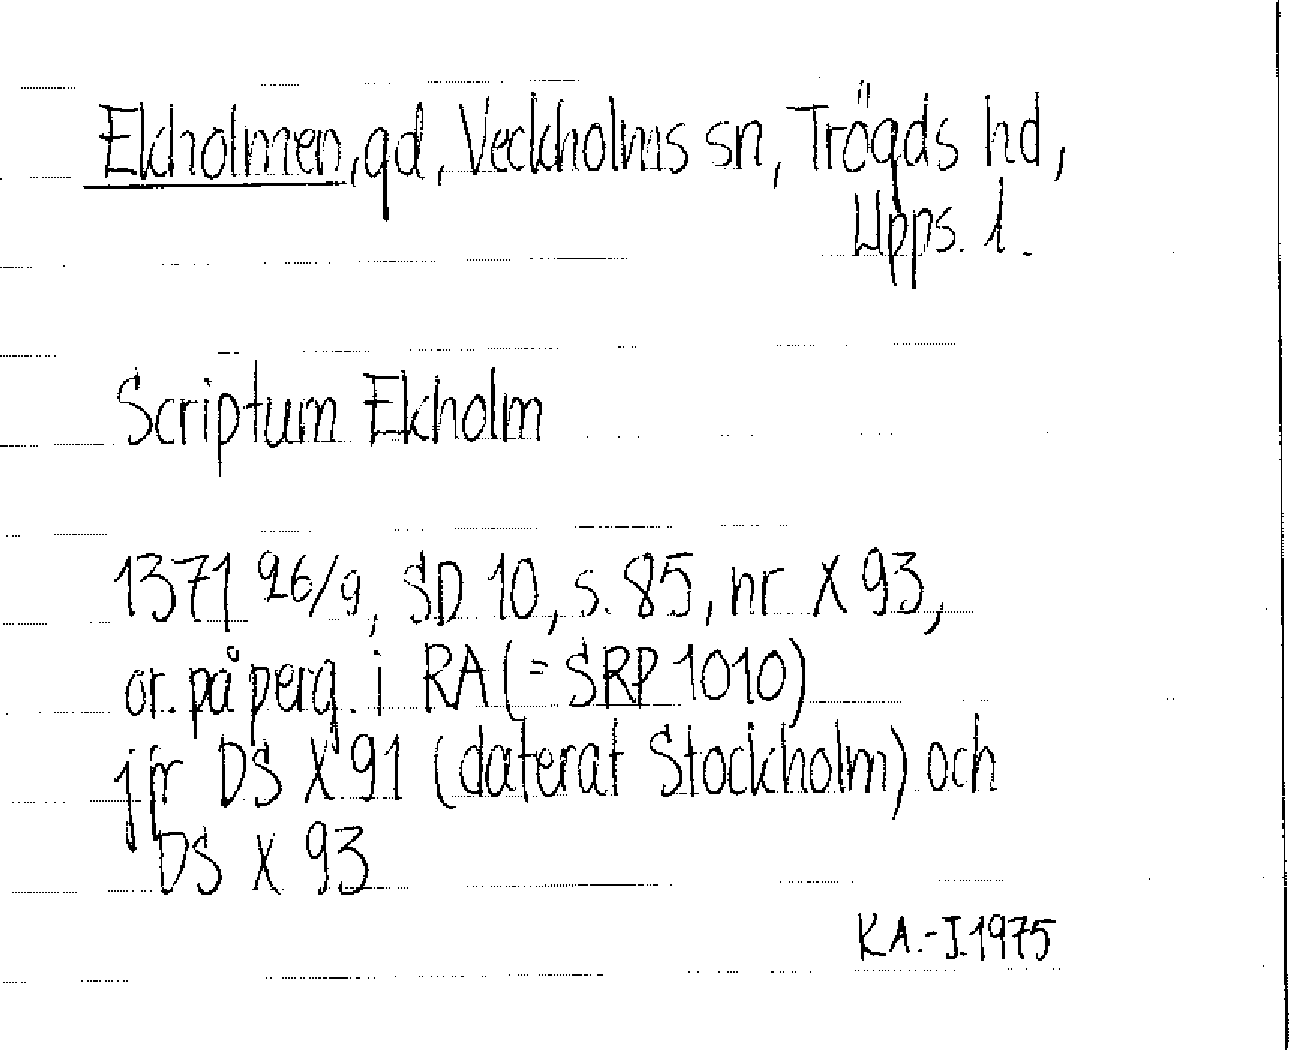 Ekholmen, gd, Veckholms sn, Trögds hd,
Upps. l.
Scriptum Ekholm
1371 26/9, SD 10, s. 85, nr X 93,
or. på perg. i RA (= SRP 1010)
jfr DS X 91 (daterat Stockholm) och
DS X 93
K.A.-I. 1975